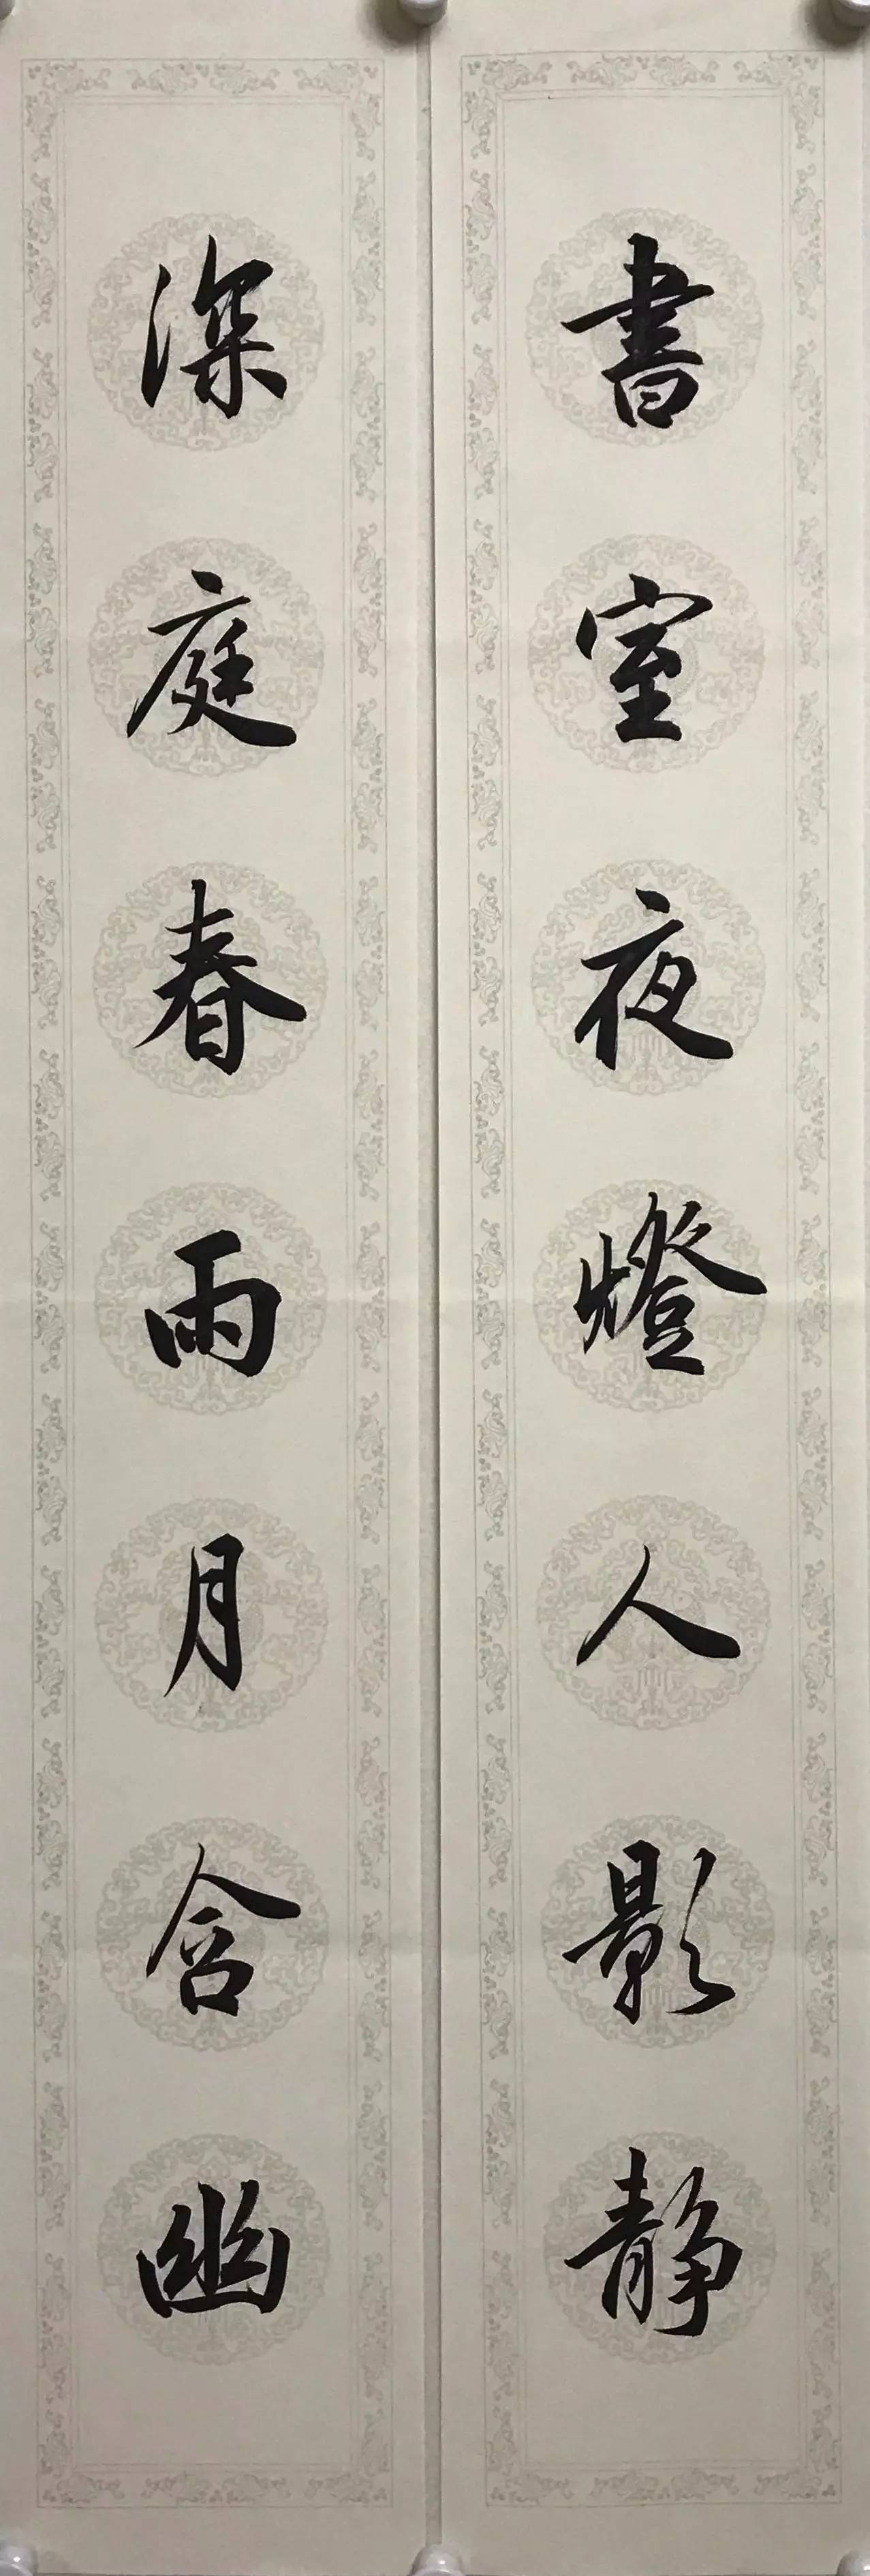 書室夜燈人影静
深庭春雨月含幽